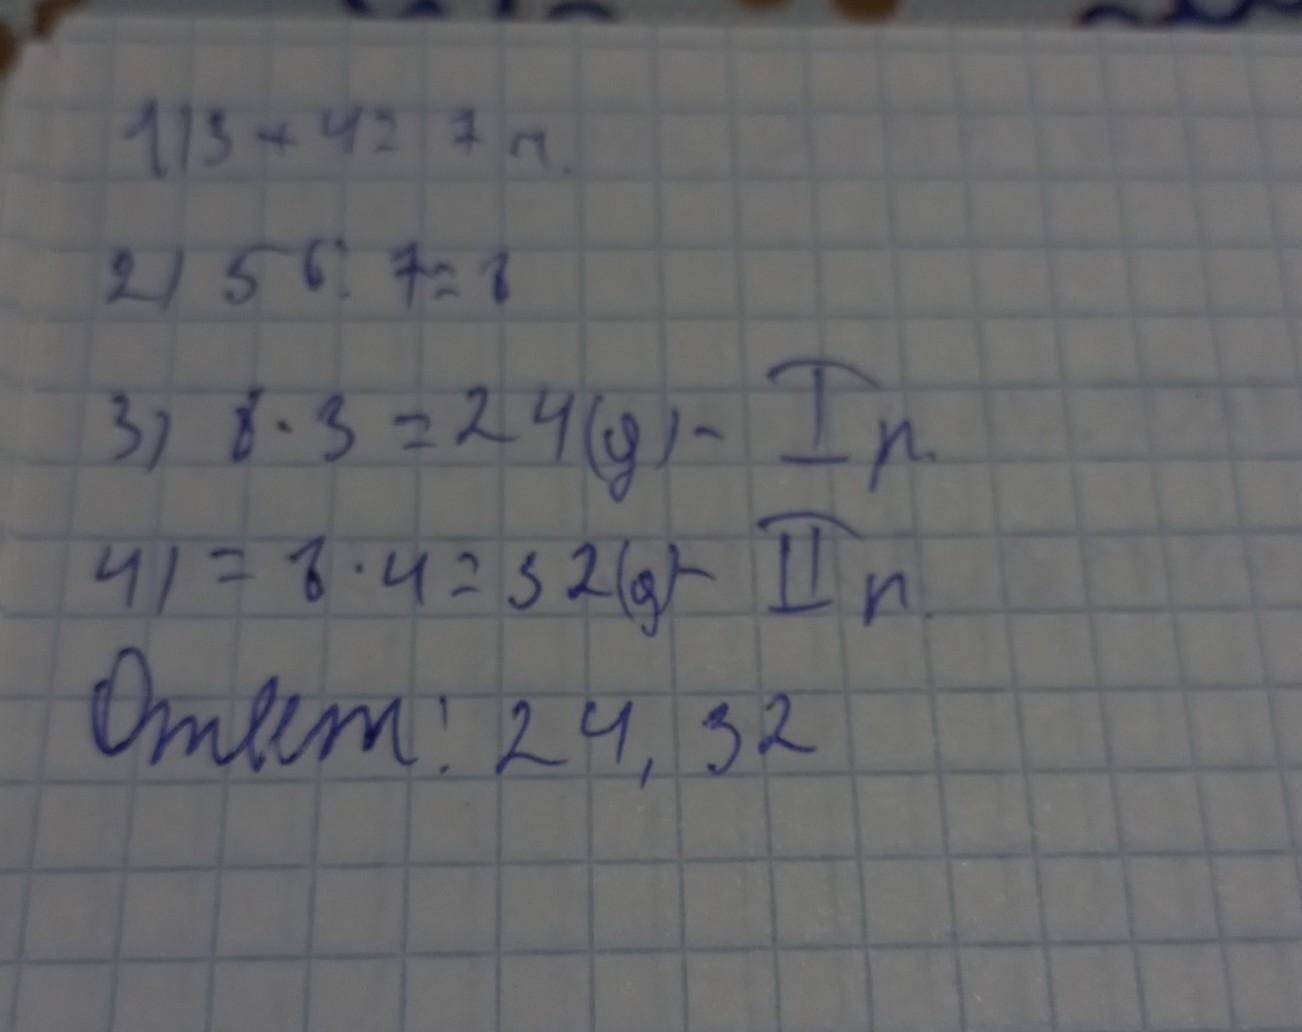 1) 3 + 4 = 7 ч.
2) 56 : 7 = 8
3) 8 · 3 = 24 (д) - I р.
4) = 8 · 4 = 32 (д) - II р.
Ответ: 24, 32